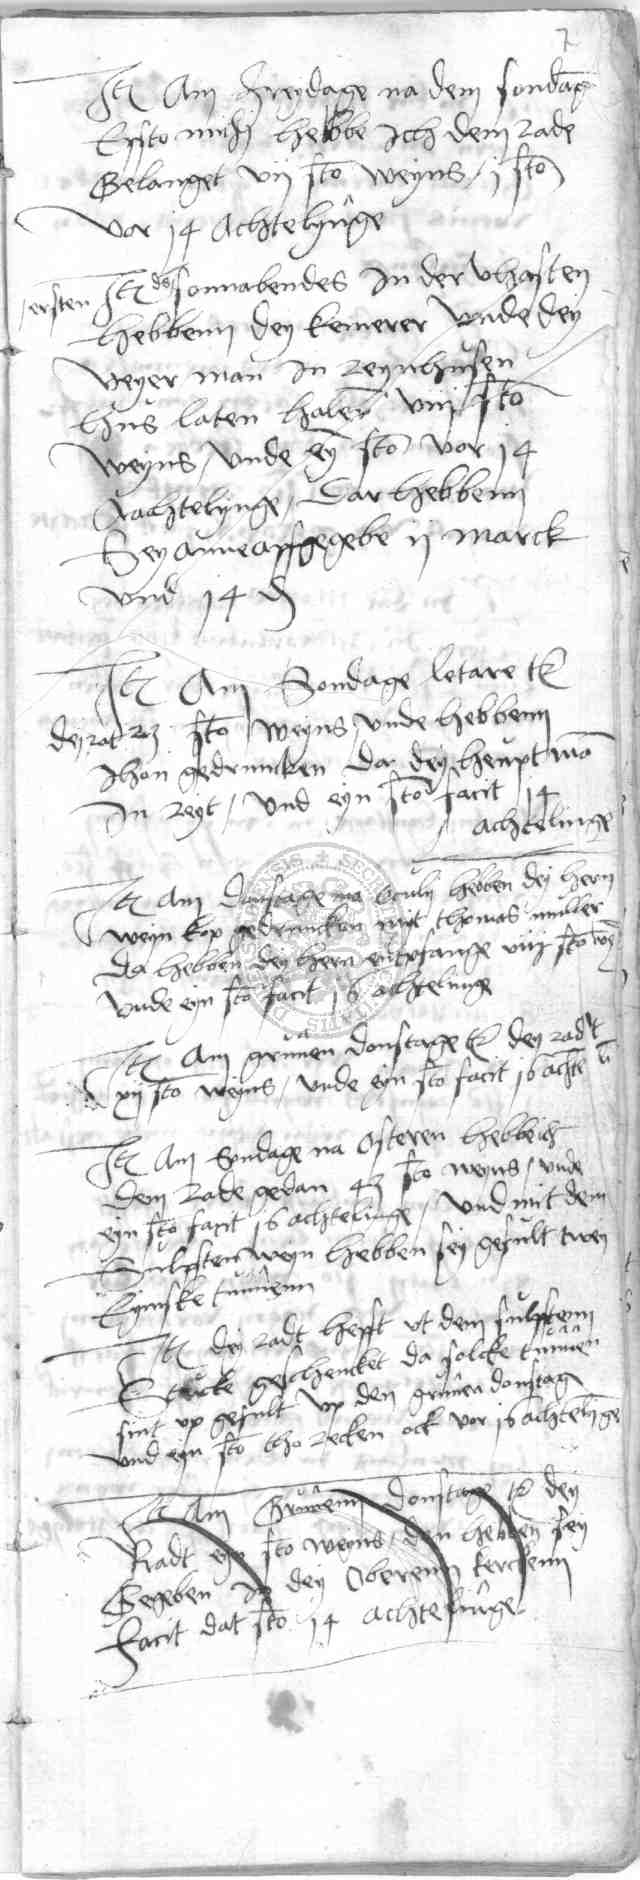 7
It Am Freydage na dem sondag
Essto michi hebbe Ich dem Rade
Gelanget vij sto weyns / j sto
vor 14 Achtelynge
ersten It des sonnabendes In der vhasten
hebbenn dey kemerer vnde dey
veyer man in Reynhusen
hus laten halen viij sto
weyns / vnde eyn sto vor 14
achtelynge / Dar hebbenn
Sey anne affgegebe ij marck
vnd 14 d
It Am Sondage letare tz
dey rat sto weyns / vnde hebbenn
Ihon gedruncken da dey heuptman
In reyt / vnd eyn sto facit 14
achtelinge
It Am donstage na Oculi hebben dey hern
weyn kop gedruncken mit thomas muller
Da hebben dey hern entpfange viij sto
vnde eyn sto facit 16 achtelinge
It Am grunen donstage tz dey radt
xij sto weyns / vnde eyn sto facit 16 achteli
It Am Sondage na Osteren hebbe ich
dem Rade gedan sto weyns / vnde
eyn sto facit 16 achtelinge / vnd mit dem
Sulfften weyn hebben sey gefult twey
Eymske tunnenn
It dey radt hefft vt dem sulfftenn
Stucke geschencket da solcke tunnen
sint vp gefult vp den grunen donstag
vnd eyn sto tho recken ock vor 16 achtelinge
It Am Grunenn donstage tz dey
Radt eyn sto weyns / den hebben sey
Gegeben in dey Oberenn kerckenn
Facit dat sto 14 achtelinge